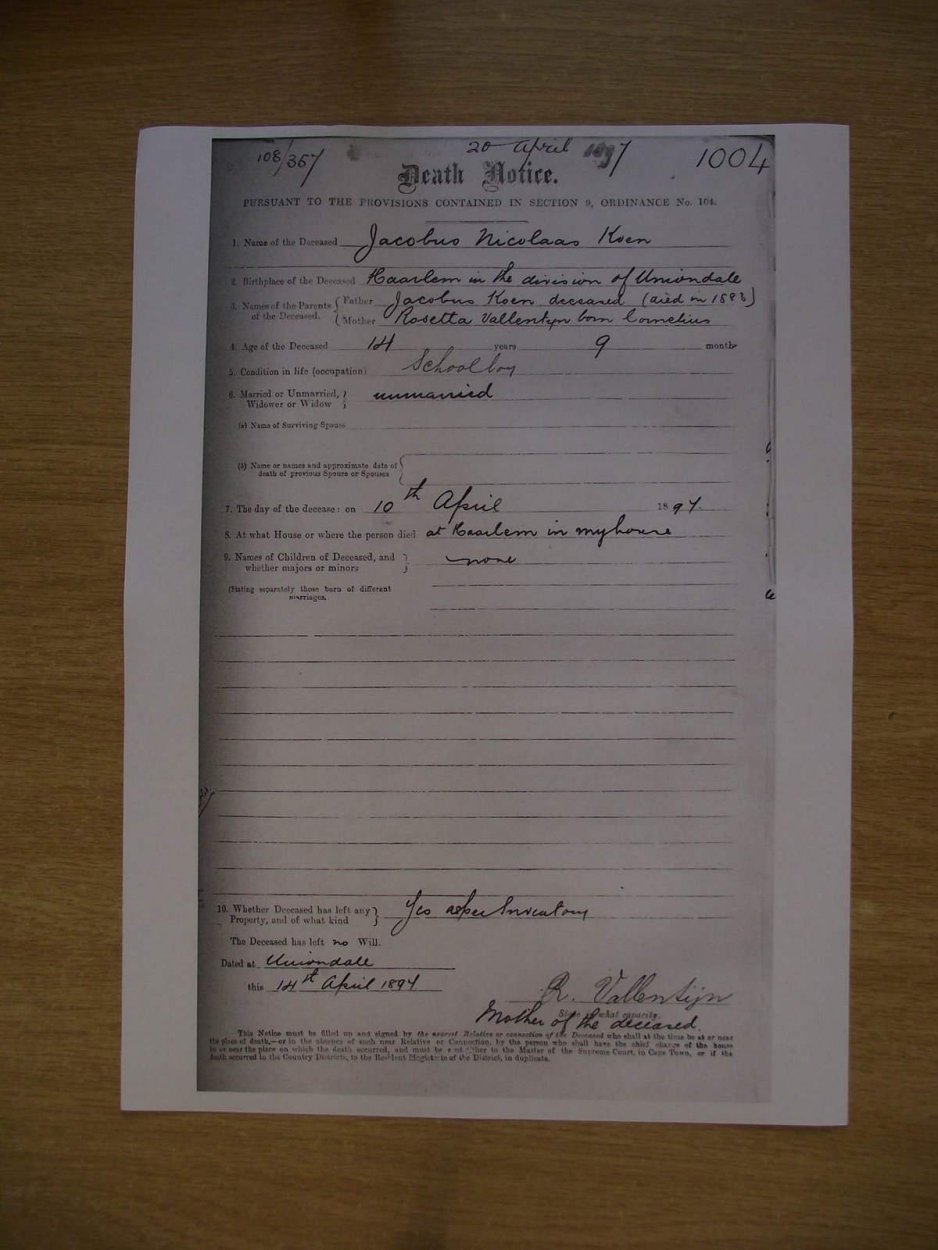 108/357
20 April 1897
1004
Death Notice.
PURSUANT TO THE PROVISIONS CONTAINED IN SECTION 9, ORDINANCE No. 104.
1. Name of the Deceased Jacobus Nicolaas Koen
2. Birthplace of the Deceased Haarlem in the division of Uniondale
3. Names of the Parents of the Deceased. { Father Jacobus Koen deceased (died in 1883)
Mother Rosetta Vallentyn born Cornelius
4. Age of the Deceased 14 years 9 months
5. Condition in life (occupation) Schoolboy
6. Married or Unmarried, Widower or Widow } unmarried
(a) Name of Surviving Spouse
(b) Name or names and approximate date of death of previous Spouse or Spouses {
7. The day of the decease: on 10th April 1897.
8. At what House or where the person died at Haarlem in my house
9. Names of Children of Deceased, and whether majors or minors } none
(Stating separately those born of different marriages.
10. Whether Deceased has left any Property, and of what kind } Yes as per Inventory
The Deceased has left no Will.
Dated at Uniondale
this 14th April 1897
R. Vallentyn
State in what capacity.
Mother of the deceased.
This Notice must be filled up and signed by the nearest Relative or connection of the Deceased who shall at the time be at or near
the place of death,—or in the absence of such near Relative or Connection, by the person who shall have the chief charge of the house
in or near the place on which the death occurred, and must be sent either to the Master of the Supreme Court, in Cape Town, or if the
death occurred in the Country Districts, to the Resident Magistrate of the District, in duplicate.